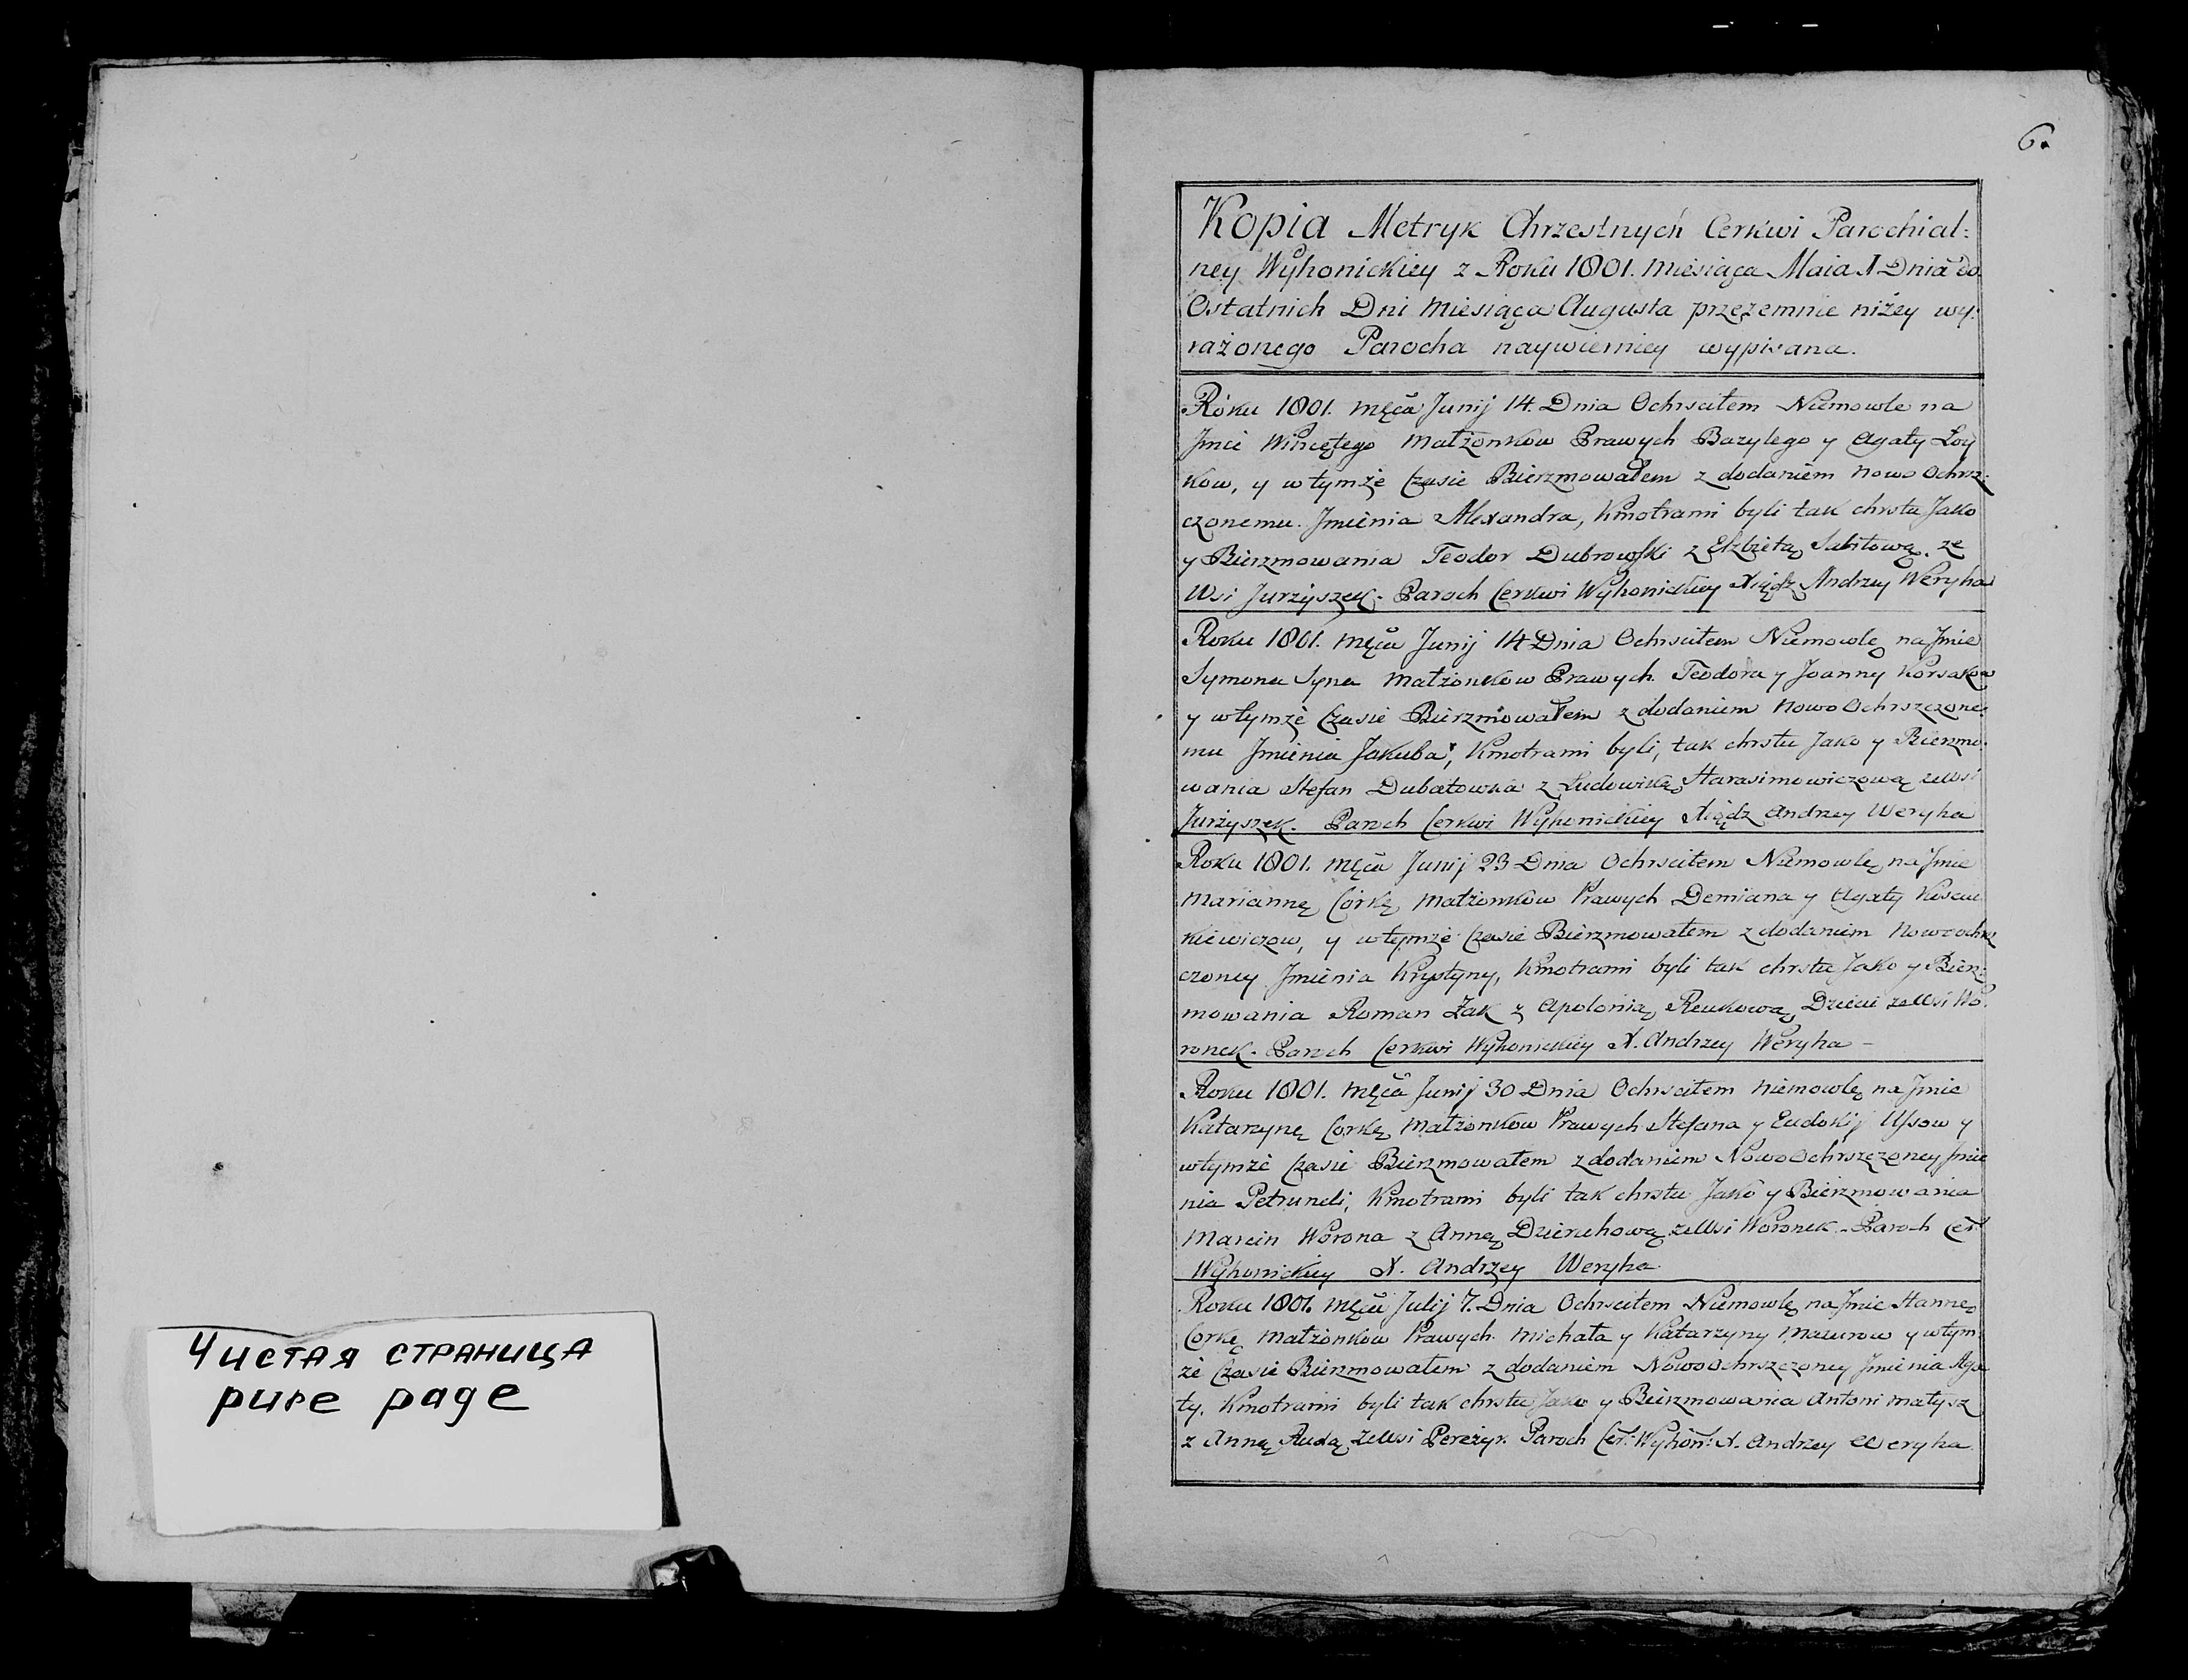 Чистая страница
pure page
6.
Kopia Metryk Chrzestnych Cerkwi Parochial:
ney Wyhonickiey z Roku 1801. Miesiąca Maia 1 Dnia do
Ostatnich Dni Miesiąca Augusta przezemnie niżey wy:
rażonego Parocha naywierniey wypisana.
Roku 1801. Męca Junij 14. Dnia Ochrsciłem Niemowle na
Jmie Wincętego Małżonkow Prawych Bazylego y Agaty Łoy
kow, y w tymże Czasie Bierzmowałem z dodaniem nowo Ochrz:
czonemu. Jmienia Alexandra, Kmotrami byli tak chrstu Jako
y Bierzmowania Teodor Dubrowski z Elzbietą Sabitową. ze
Wsi Jurżyszek. Paroch Cerkwi Wyhonickiey Xiądz Andrzey Weryha
Roku 1801. Męca Junij 14 Dnia Ochrsciłem Niemowlę na Jmie
Symona Syna Małżonkow Prawych. Teodora y Joanny Korsakow
y wtymże Czasie Bierzmowałem z dodaniem Nowo Ochrszczone:
mu Jmienia Jakuba, Kmotrami byli, tak chrstu Jako y Bierzmo:
wania Stefan Dubatowka z Ludowiką Harasimowiczową zewsi
Jurżyszek. Paroch Cerkwi Wyhonickiey Xiądz Andrzey Weryha
Roku 1801. Męca Junij 23 Dnia Ochrsciłem Niemowlę na Jmie
Mariannę Corkę Małżonkow Prawych Demiana y Agaty
kiewiczow, y wtymże Czasie Bierzmowałem z dodaniem Nowo ochrz
czoney Jmienia Krystyny, Kmotrami byli tak chrstu Jako y Bierz:
mowania Roman Żak z Apolonią Reukową Dzieci zeWsi Wo:
ronek. Paroch Cerkwi Wyhonickiey X. Andrzey Weryha -
Roku 1801. Męca Junij 30 Dnia Ochrsciłem Niemowlę na Jmie
Katarzynę Corkę Małżonkow Prawych Stefana y Eudokij Usow y
wtymże Czasie Bierzmowałem z dodaniem Nowo Ochrszczoney Jmie
nia Petruneli, Kmotrami byli tak chrstu Jako y Bierzmowania
Marcin Worona z Anną Dzieruhową zeWsi Woronek - Paroch Cer:
Wyhonickiey X. Andrzey Weryha.
Roku 1801. Męca Julij 7. Dnia Ochrsciłem Niemowlę na Jmie Hannę
Corkę Małżonkow Prawych. Michała y Katarzyny Mazurow y wtym:
że Czasie Bierzmowałem z dodaniem Nowo Ochrszczoney Jmienia Aga
ty. Kmotrami byli tak chrstu Jako y Bierzmowania Antoni Małysz
z Anną Rudą zeWsi Pereżyr. Paroch Cer: Wyhon: X. Andrzey Weryha